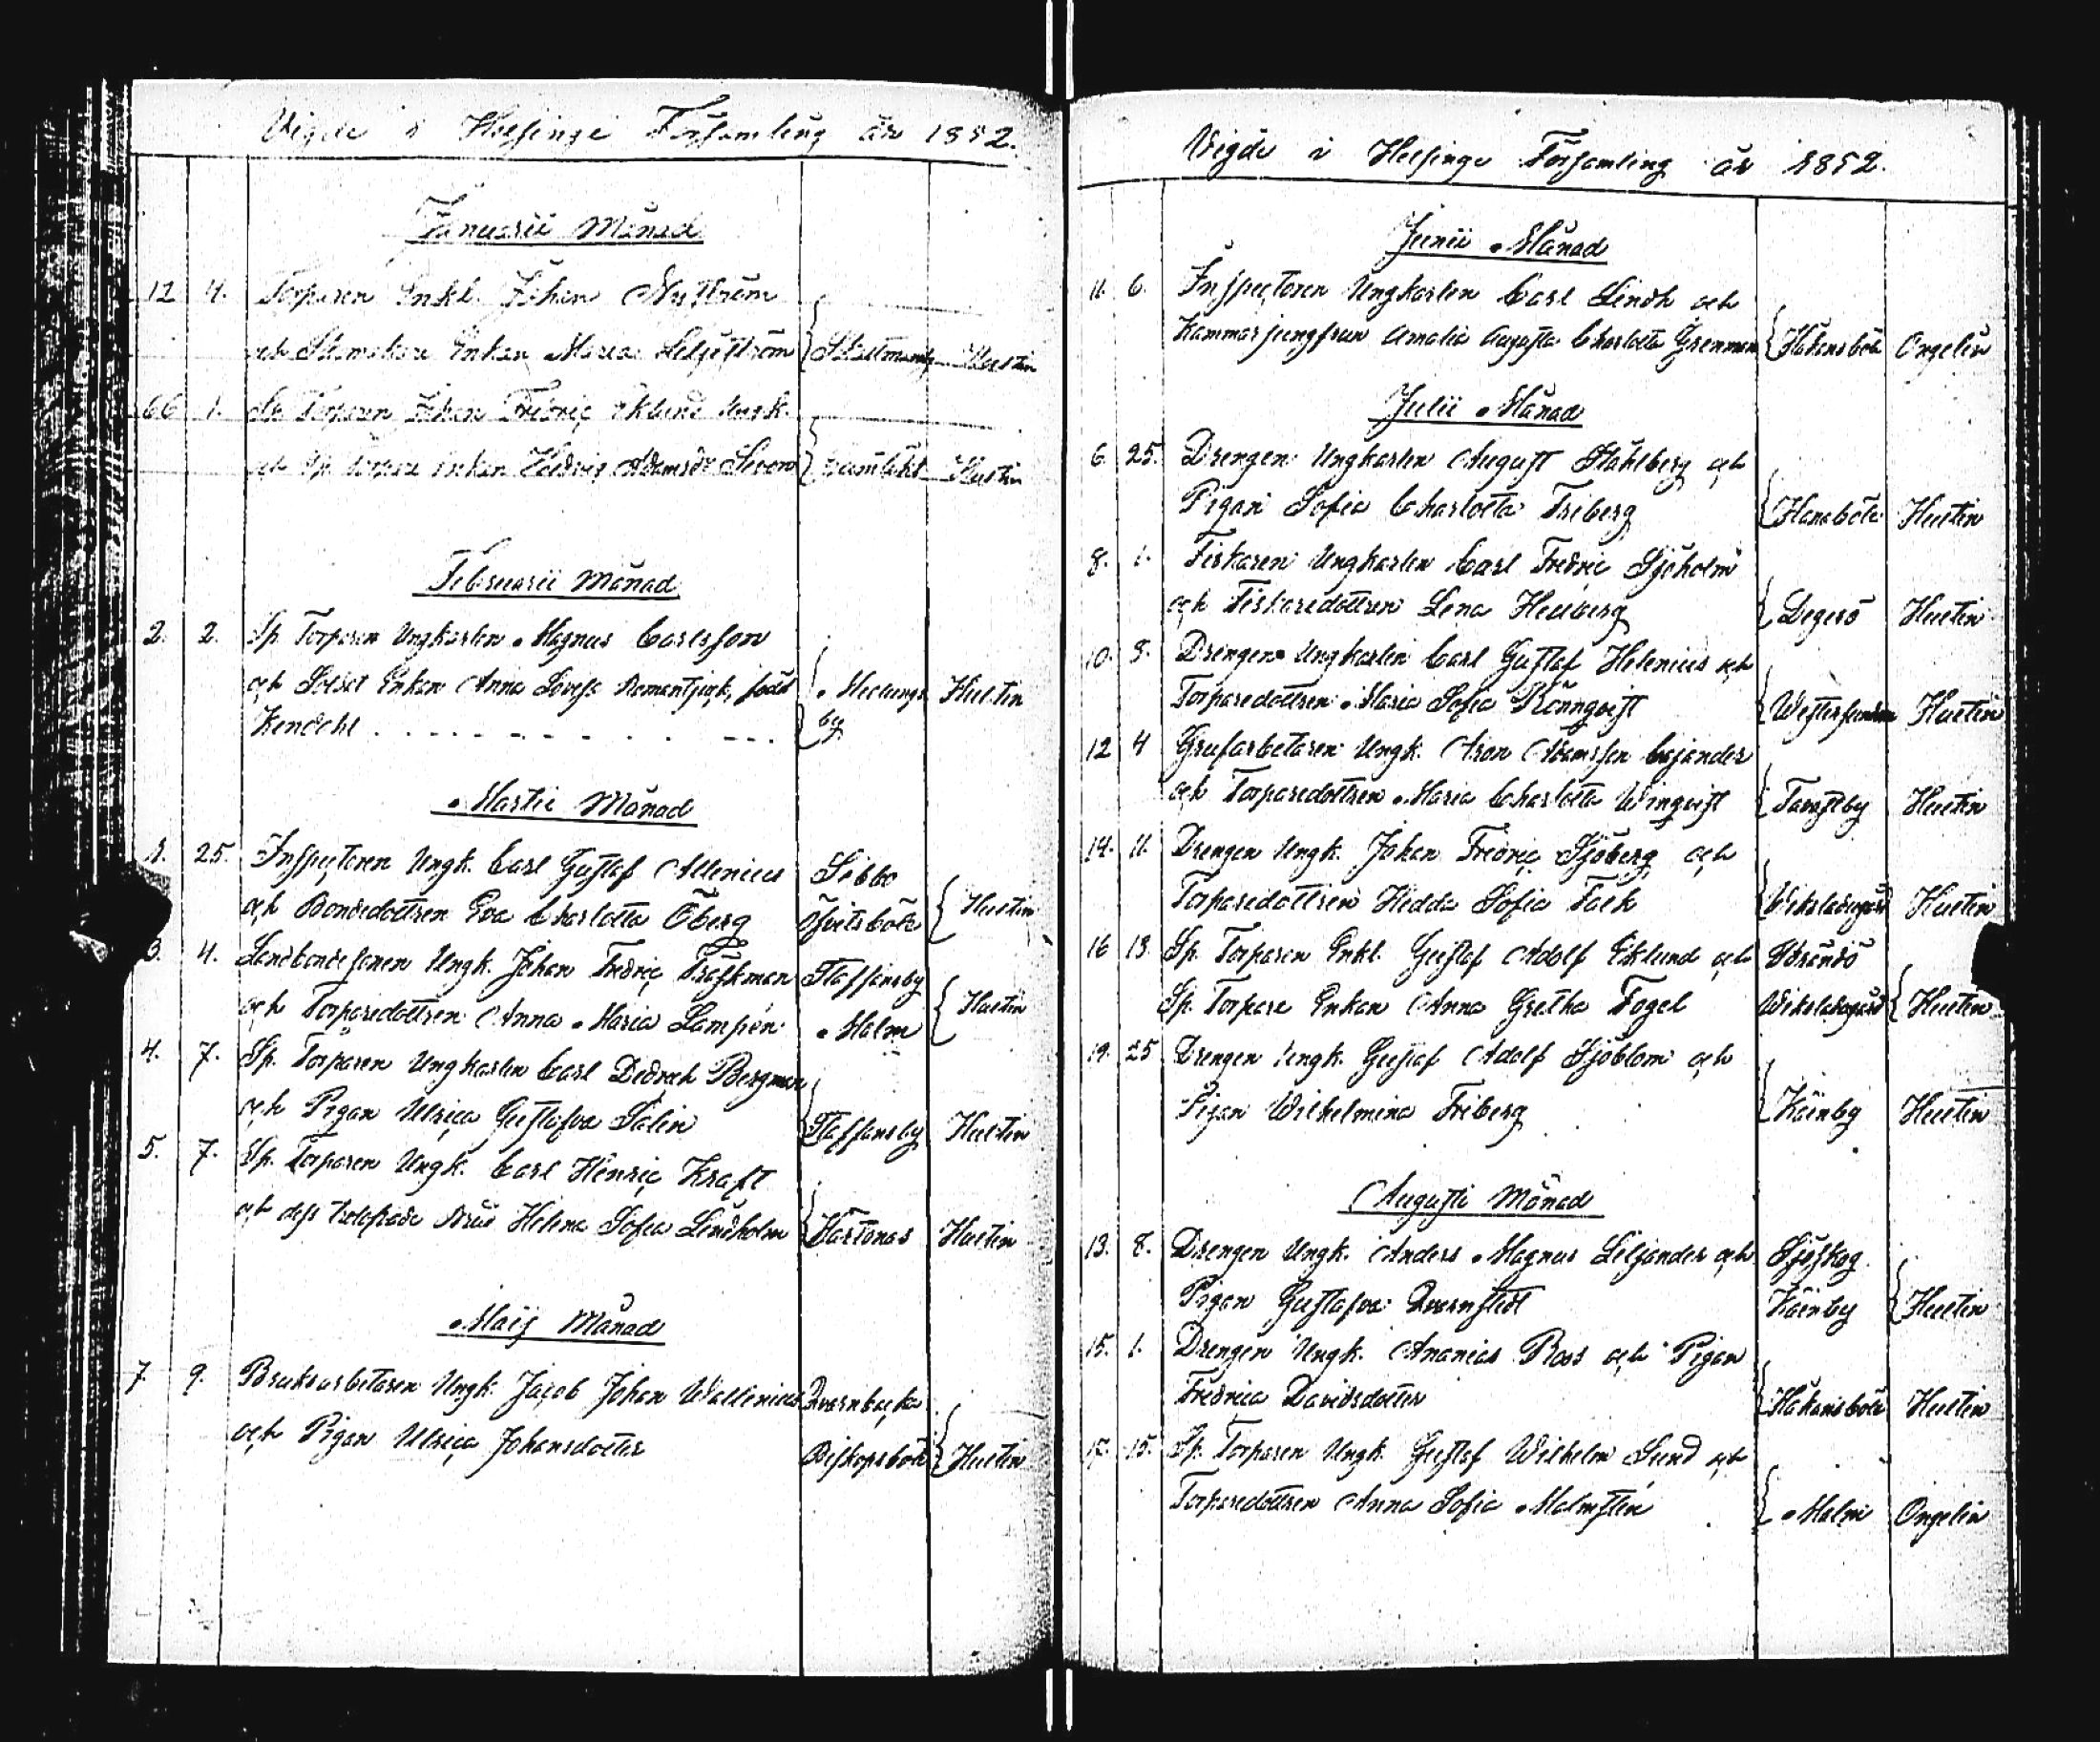 Vigde i Helsinge Församling år 1852.
Januarii Månad
12 4. Torparen Enkl. Johan Nyström
och Skomakare Enkan Maria Liljeström Skattmanby Hustin
66 1. Sp. Torparen Johan Fredric Eklund Ungk.
och Sp. Torpare Enkan Hedvig Adamsdr Gumtäkt Hustin
Februarii Månad
2. 2. Sp. Torparen Ungkarlen Magnus Carlsson
och Soldat Enkan Anna Lovisa född Mellungs Hustin
Kendahl . . . . . . . . . . by
Martii Månad
1. 25. Inspectoren Ungk. Carl Gustaf Allenius Sebbo
och Bondedottren Eva Charlotta Öberg Öfvitsböle Hustin
3. 4. Landbondesonen Ungk. Johan Fredric Träskman Staffansby
och Torparedottren Anna Maria Lampén Malm Hustin
4. 7. Sp. Torparen Ungkarlen Carl Didrich Bergman
och Pigan Ulrica Gustafva Salin Staffansby Hustin
5. 7. Sp. Torparen Ungk. Carl Henric Kraft
och dess trolofvade Brud Helena Sofia Lindholm Hartonas Hustin
Maij Månad
7 9. Bruksarbetaren Ungk. Jacob Johan Wallenius Qvarnbacka
och Pigan Ulrica Johansdotter Biskopsböle Hustin
Vigde i Helsinge Församling år 1852.
Junii Månad
11. 6. Inspectoren Ungkarlen Carl Lindh och
Kammarjungfrun Amalia Augusta Charlotta Grenman Håkansböle Ongelin
Julii Månad
6. 25. Drengen Ungkarlen August Ståhlberg och
Pigan Sofia Charlotta Friberg Hanaböle Hustin
8. 1. Fiskaren Ungkarlen Carl Fredric Sjöholm
och Fiskaredottren Lena Hedberg Degerö Hustin
10. 8. Drengen Ungkarlen Carl Gustaf Helenius och
Torparedottren Maria Sofia Rönnqvist Westersundom Hustin
12 4 Grufarbetaren Ungk. Aron Adamsson Cajander
och Torparedottren Maria Charlotta Winqvist Tavastby Hustin
14. 11. Drengen Ungk. Johan Fredric Sjöberg och
Torparedottren Hedda Sofia Falk Wiksladugård Hustin
16 13. Sp. Torparen Enkl. Gustaf Adolf Eklund och Brändö
Sp. Torpare Enkan Anna Gretha Fogel Wiksladugård Hustin
19. 25 Drengen Ungk. Gustaf Adolf Sjöblom och
Pigan Wilhelmina Friberg Käinby Hustin
Augusti Månad
13. 8. Drengen Ungk. Anders Magnus Liljander och Sjöskog
Pigan Gustafva Qvarnstedt Käinby Hustin
15. 1. Drengen Ungk. Ananias Ross och Pigan
Fredrica Davidsdotter Håkansböle Hustin
17. 15. Sp. Torparen Ungk. Gustaf Wilhelm Lund och
Torparedottren Anna Sofia Malmstén Malm Ongelin